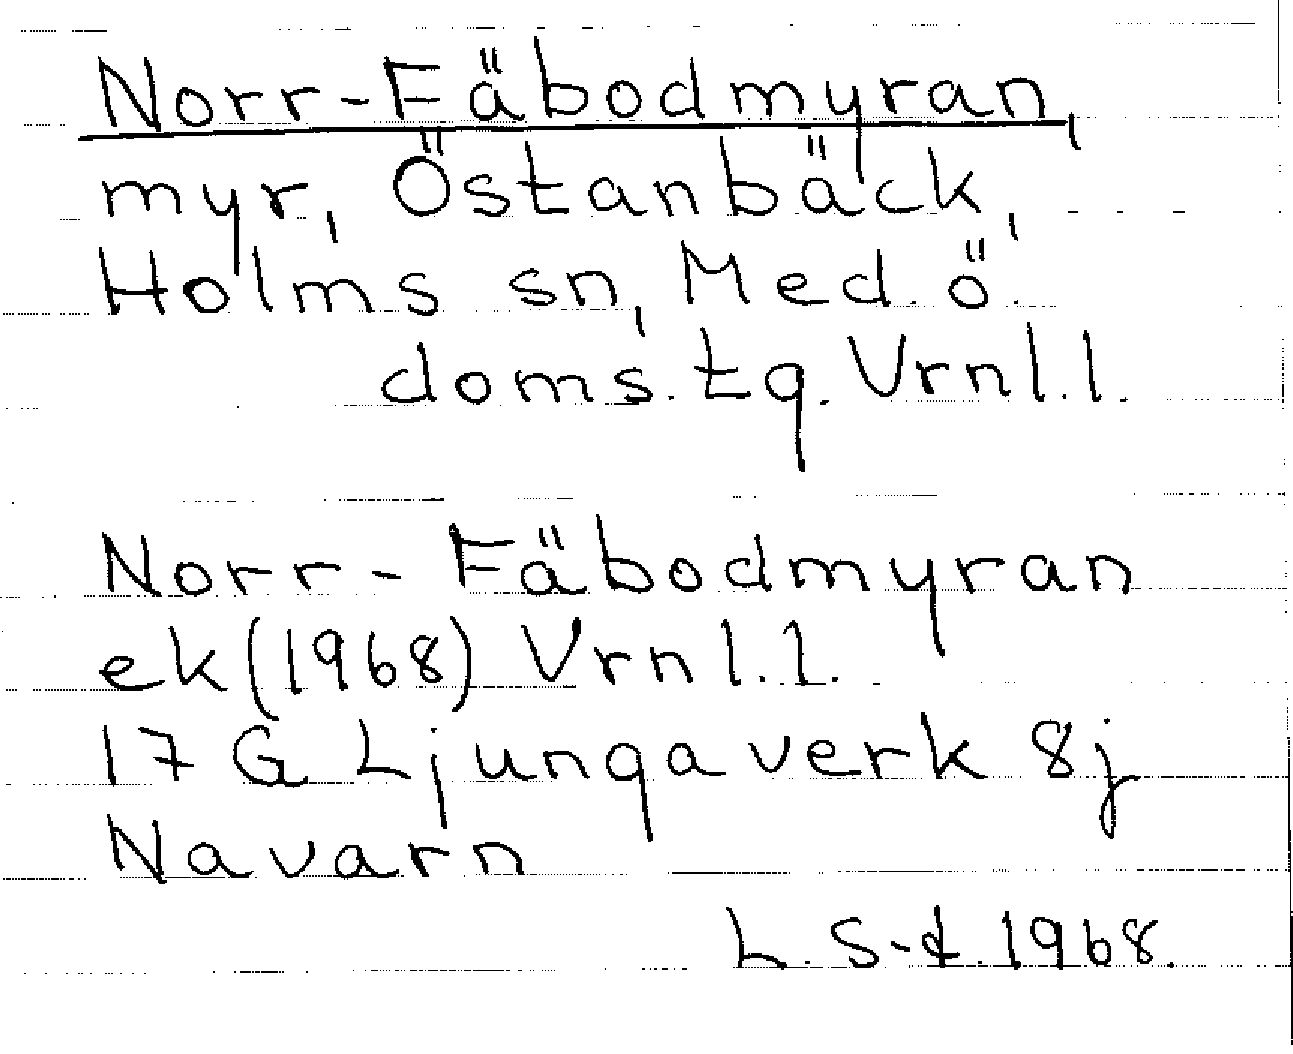 Norr-Fäbodmyran,
myr, Östanbäck,
Holms sn, Med. ö.
doms. tg. Vrnl. l.
Norr-Fäbodmyran
ek (1968) Vrnl. l.
17 G Ljungaverk 8j
Navarn
L. S-d. 1968.